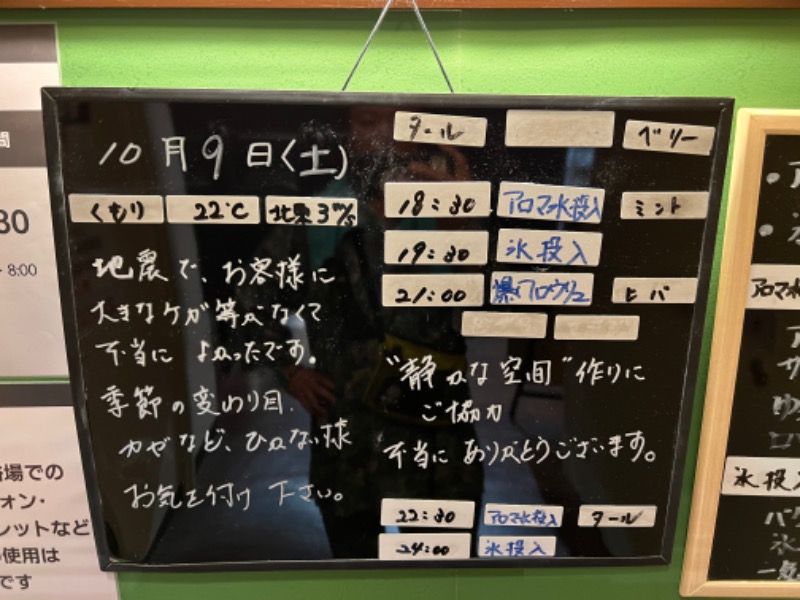 10月9日(土)
くもり 22℃ 北東3m/s
地震で、お客様に
大きなケガ等がなくて
本当に よかったです。
季節の変わり目、
カゼなど、ひかない様
お気を付け下さい。
タール ベリー
18:30 アロマ水投入 ミント
19:30 氷投入
21:00 爆アロウリュ ヒバ
"静かな空間"作りに
ご協力
本当に ありがとうございます。
22:30 アロマ水投入 タール
24:00 氷投入
30
8:00
場での
ォン・
レットなど
使用は
です
アロマ水
氷投入